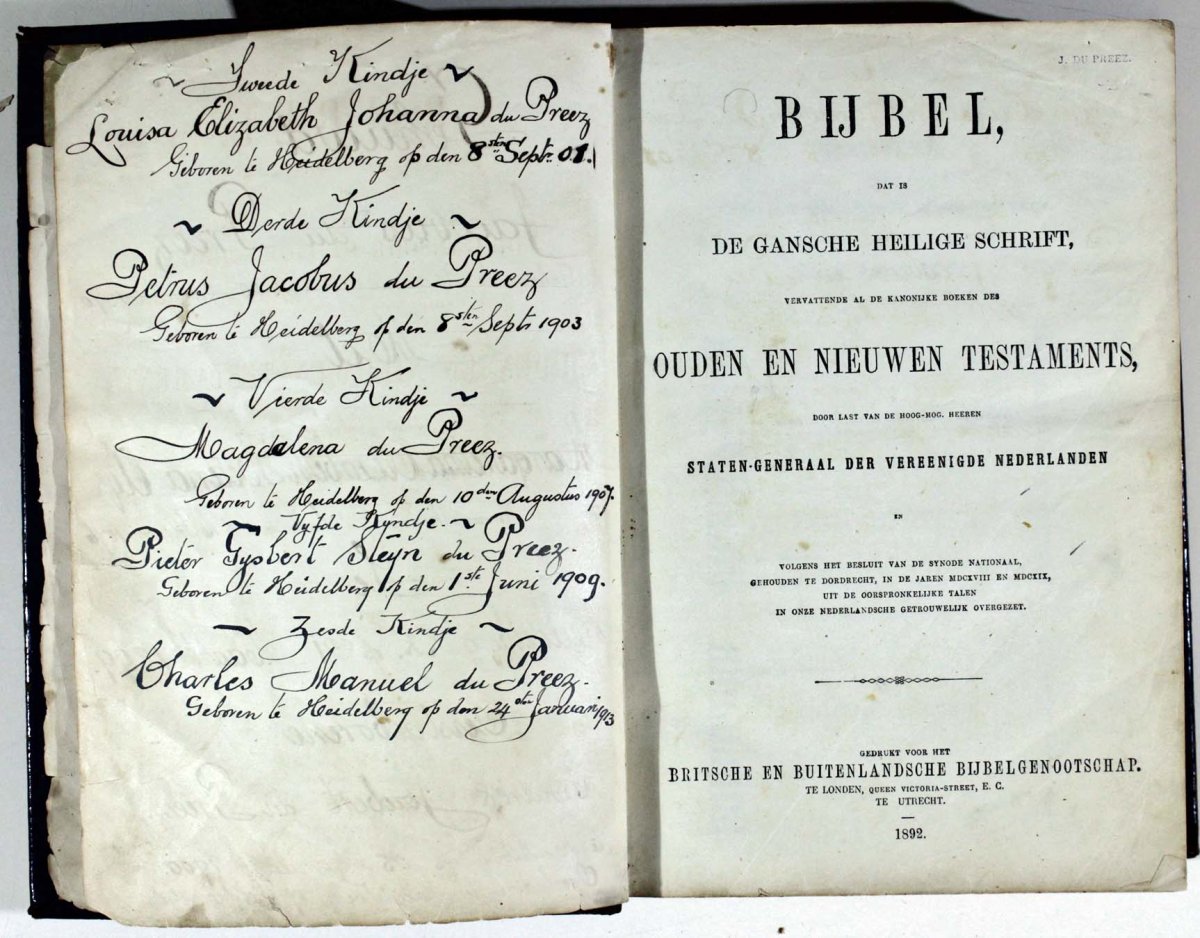 ~ Tweede Kindje ~
Louisa Elizabeth Johanna du Preez
Geboren te Heidelberg op den 8sten Septr. 01.
~ Derde Kindje ~
Petrus Jacobus du Preez
Geboren te Heidelberg op den 8sten Septr 1903
~ Vierde Kindje ~
Magdalena du Preez.
Geboren te Heidelberg op den 10den Augustus 1907.
Vyfde Kyndje. ~
Pieter Gysbert Steyn du Preez.
Geboren te Heidelberg op den 1ste Juni 1909.
~ Zesde Kindje ~
Charles Manuel du Preez.
Geboren te Heidelberg op den 24ste Januari 1913
J. DU PREEZ.
BIJBEL,
DAT IS
DE GANSCHE HEILIGE SCHRIFT,
VERVATTENDE AL DE KANONIJKE BOEKEN DES
OUDEN EN NIEUWEN TESTAMENTS,
DOOR LAST VAN DE HOOG-MOG. HEEREN
STATEN-GENERAAL DER VEREENIGDE NEDERLANDEN
EN
VOLGENS HET BESLUIT VAN DE SYNODE NATIONAAL,
GEHOUDEN TE DORDRECHT, IN DE JAREN MDCXVIII EN MDCXIX,
UIT DE OORSPRONKELIJKE TALEN
IN ONZE NEDERLANDSCHE GETROUWELIJK OVERGEZET.
GEDRUKT VOOR HET
BRITSCHE EN BUITENLANDSCHE BIJBELGENOOTSCHAP.
TE LONDEN, QUEEN VICTORIA-STREET, E. C.
TE UTRECHT.
1892.